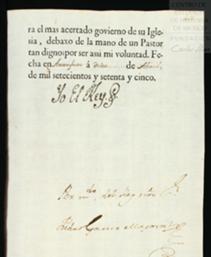 ra el mas acertado govierno de su Igle-
sia, debaxo de la mano de un Pastor
tan digno: por ser assi mi voluntad. Fe-
cha en Aranjuez à diez de Abril
de mil setecientos y setenta y cinco.
Yo El Rey
Por m.do del Rey nro S.r